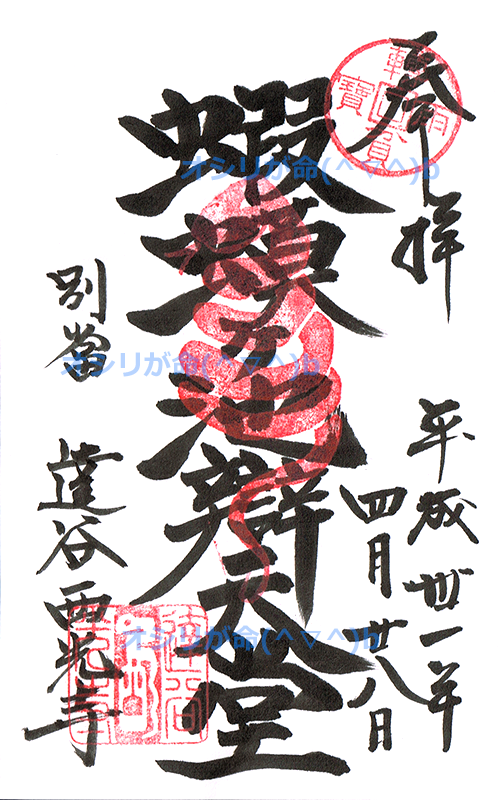 奉拝
平成丗一年
四月廿八日
蝦蟆ヶ池辯天堂
別當
達谷西光寺
オシリが命(^▽^)b
オシリが命(^▽^)b
オシリが命(^▽^)b